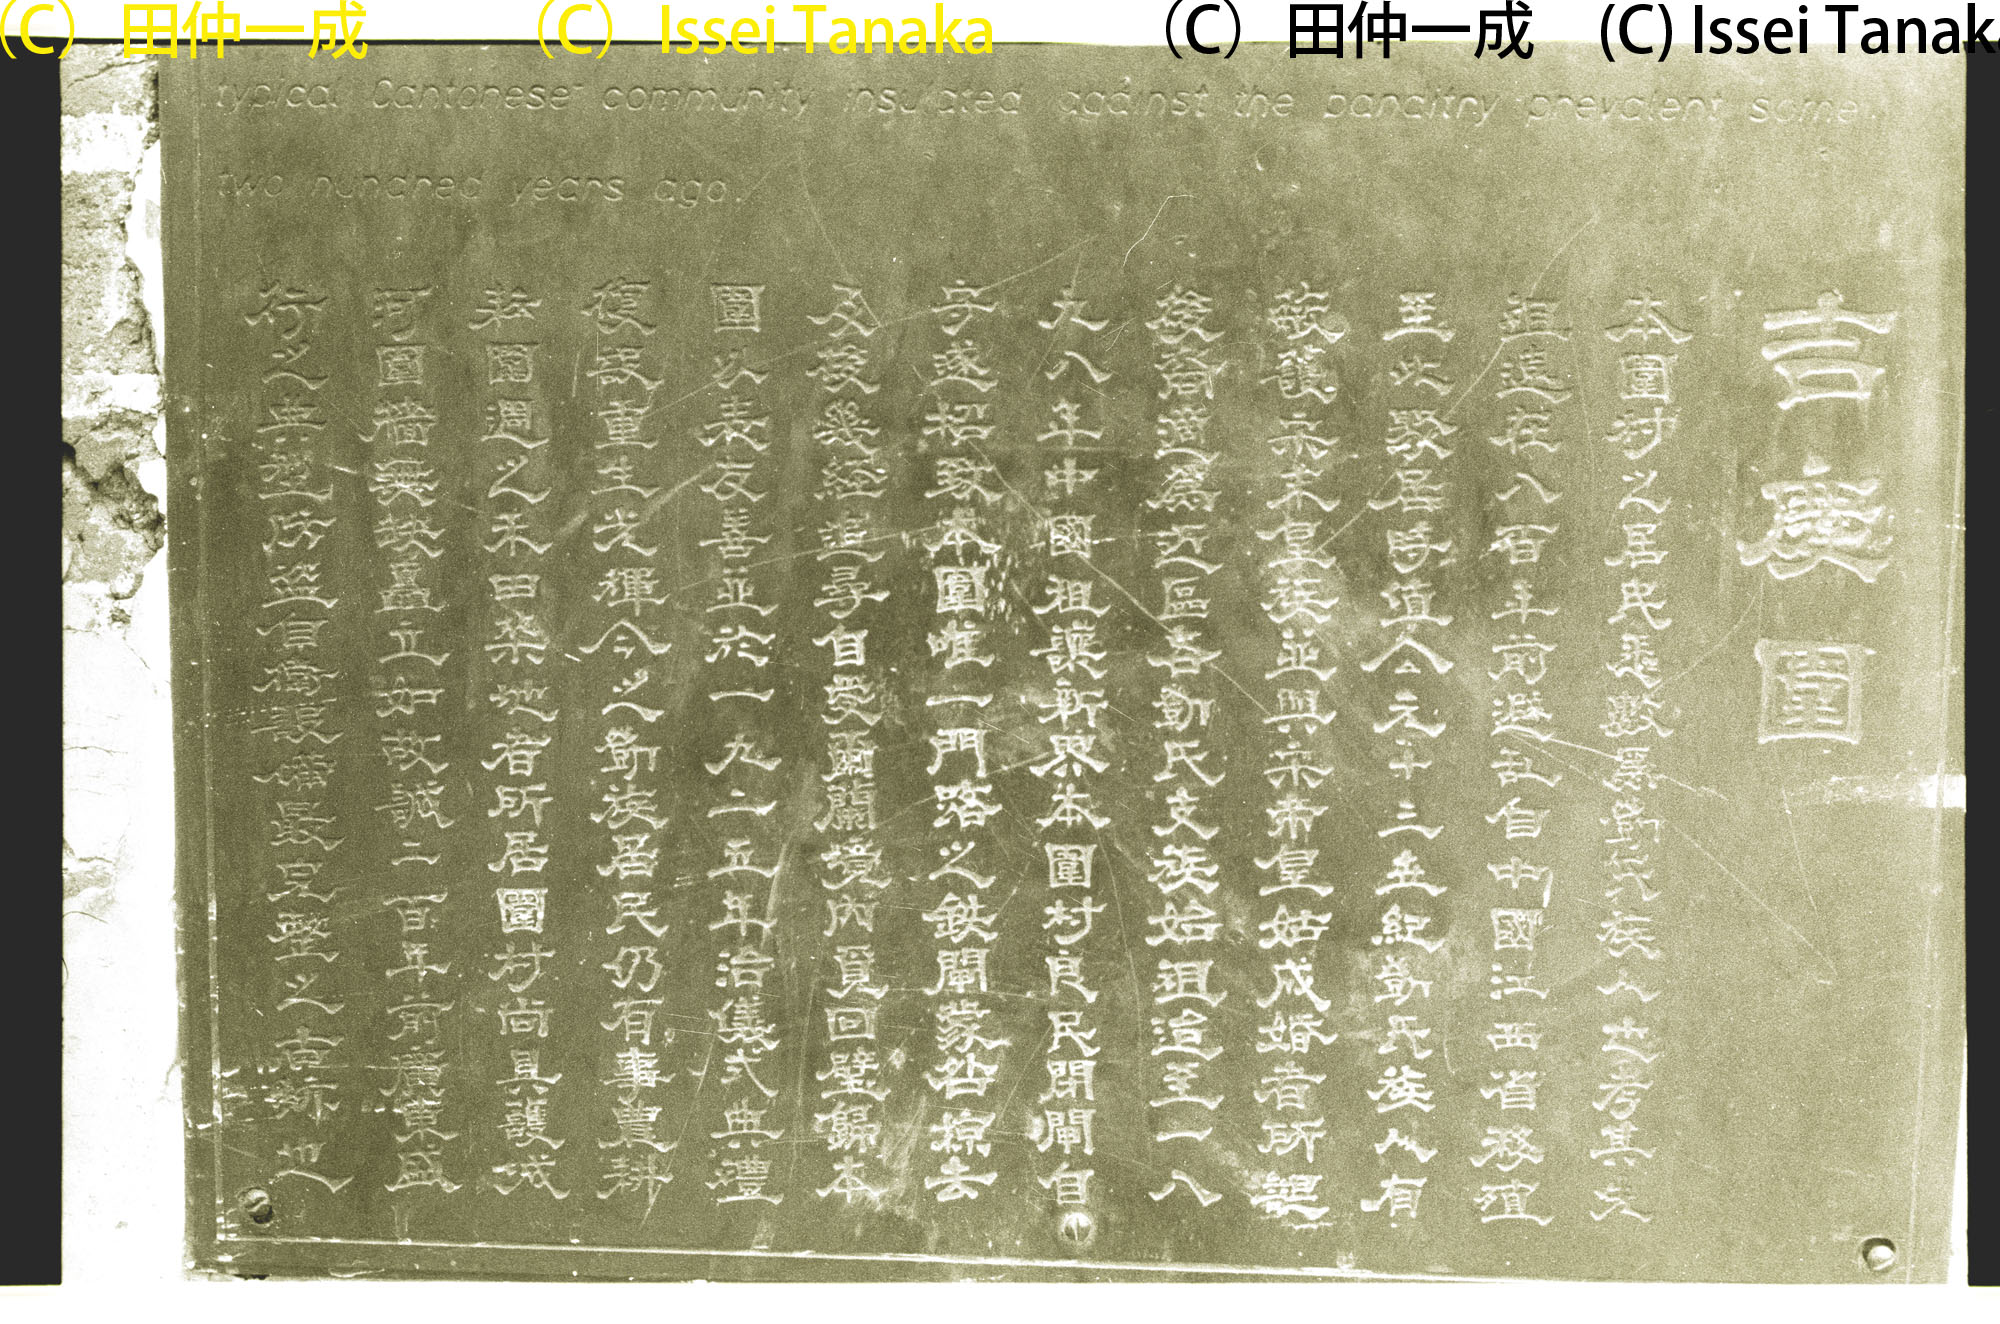 (C) 田仲一成 (C) Issei Tanaka (C) 田仲一成 (C) Issei Tanaka
typical Cantonese community insulated against the banditry prevalent some
two hundred years ago.
吉慶圍
本圍村之居民乃為鄧氏族人也考其先
祖遠在八百年前避乱自中國江西省移殖
至此聚居時值公元十二世紀鄧氏族人有
救護宋末皇族並與宋帝皇姑成婚者所誕
後裔適為近區各鄧氏支族始祖迨至一八
九八年中國租讓新界本圍村良民閉閘自
守遂招致本圍唯一門路之鉄閘蒙台掠去
及後幾經追尋自愛爾蘭境內覓回璧歸本
圍以表友善並於一九二五年洽儀式典禮
復設重生光輝今之鄧族居民仍有事農耕
於圍週之禾田菜地者所居圍村尚具護城
河圍牆無缺矗立如故誠二百年前廣東盛
行之典型防盜自衛設備最完整之古跡也